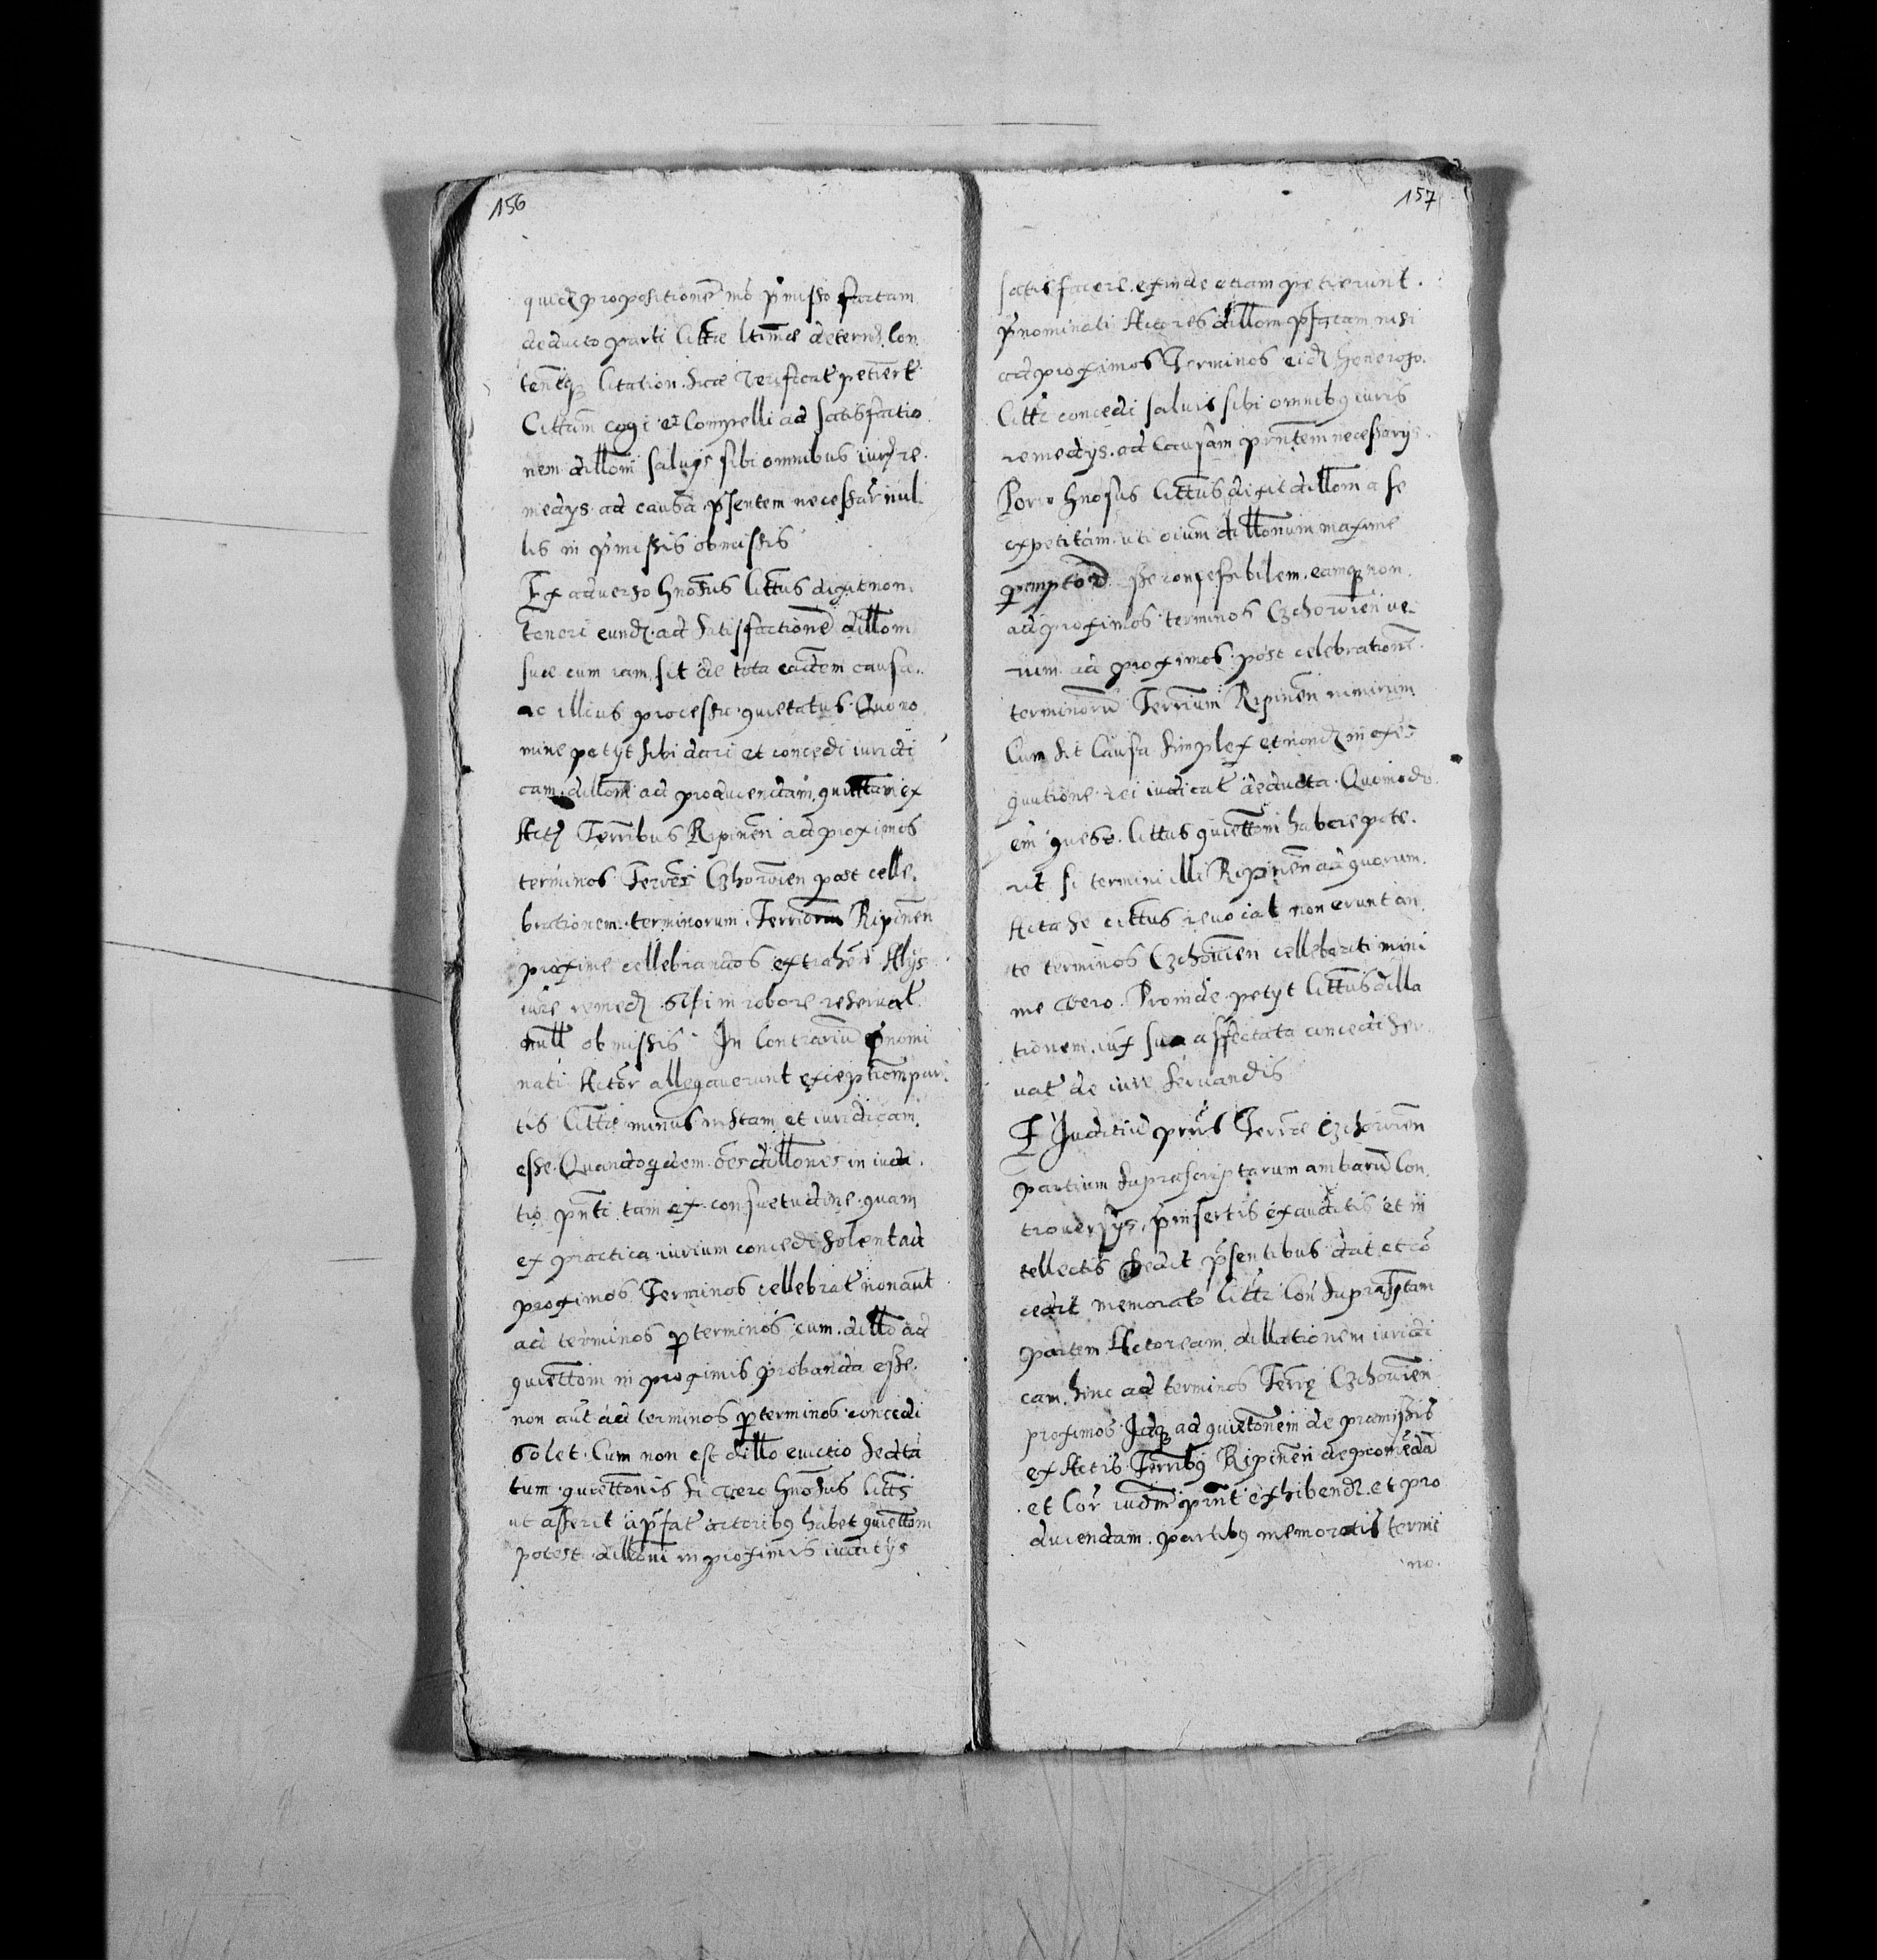 156
quidẽ propositionẽ mõ p̃misso factam
deducto parti Cittãe
tentq̃ Citation suae Verificat petiert
Cittãm cogi et Compelli ad satisfactio
nem dillom̃ saluis sibi omnibus iurꝭ re
medys ad causã p̃sentem necessar̃ nul
lis in p̃missis obmissis
Ex aduerso Gnosus Cittũs dixit non
teneri eundẽ ad satisfactionẽ dillom̃
suae cum iam sit de tota eadem causa
ac illius processu quietatus Quo no
mine petyt sibi dari et concedi iuridi
cam dillom̃ ad producendam quiettam ex
Actꝭ Terribus Ripinen̄ ad proximos
terminos Terres Czhowien post celle
brationem terminorum Terriorum Ripinen
proxime cellebrandos extrahen̄ Alys
iure remedꝭ sibi in robore reseruat
null obmissis In Contrariũ p̃nomi
nati Actor̃ allegauerunt exceptiom̃ par
tis Cittãe minus iustam et iuridicam
esse Quandoquidem oẽs dillones in iudi
tio p̃nti tam ex consuetudine quam
ex practica iurium concedi solent ad
proximos Terminos cellebrat non aut
ad terminos p terminos cum dillo ad
quiettom̃ in proximis probanda esse
non aut ad terminos p terminos concedi
solet Cum non est dillo euictio sed ta
tum quiettonis si vero Gnosus Citts
ut asserit a p̃fat actoribꝰ habet quiettom
potest dillom̃ in proximis iuditys
157
satisfacere exinde etiam petierunt
p̃nominati Actores dillom p̃fatam nisi
ad proximos Terminos eidẽ Generoso
Citto concedi saluis sibi omnibꝰ iuris
remedys ad Causam prñtem necessarys
Porro Gnosus Cittũs dixit dillom a se
expetitam uti oium dillonum maxime
esse concessibilem eamqꝫ non
ad proximos terminos Czchowien ve
rum ad proximos post celebrationẽ
terminorũ Terrium̃ Ripinen̄ nimirum
Cum sit Causa simplex et nondꝫ in exe
qutione rei iudicat deducta Quomodo
em̃ queso Cittus quiettom̃ habere pote
rit si termini illi Ripinen̄ ad quorum
Acta se cittus reuocat non erunt an
te terminos Czchowien cellebrati mini
me vero Proinde petyt Cittus dilla
tionem iux sua affectata concedi ser
uat de iure seruandis
Et Juditiũ prñs Terrae Czchowien
partium suprascriptarum ambarũ Con
trouersys p̃insertis exauditis et in
tellectis Sedit p̃sentibus dat et cõ
cedit memorato Citto Con̄ supras̃ptam
partem Actoream dillationem iuridi
cam hinc ad terminos Terrę Czchowien
proximos Idqꝫ ad quietonẽm de pramissis
ex Actis Terribꝰ Ripinen̄ depromẽda
et Cor̃ iudm̃ prñt exhibendꝫ et pro
ducendam partibꝰ memoratis termi
no